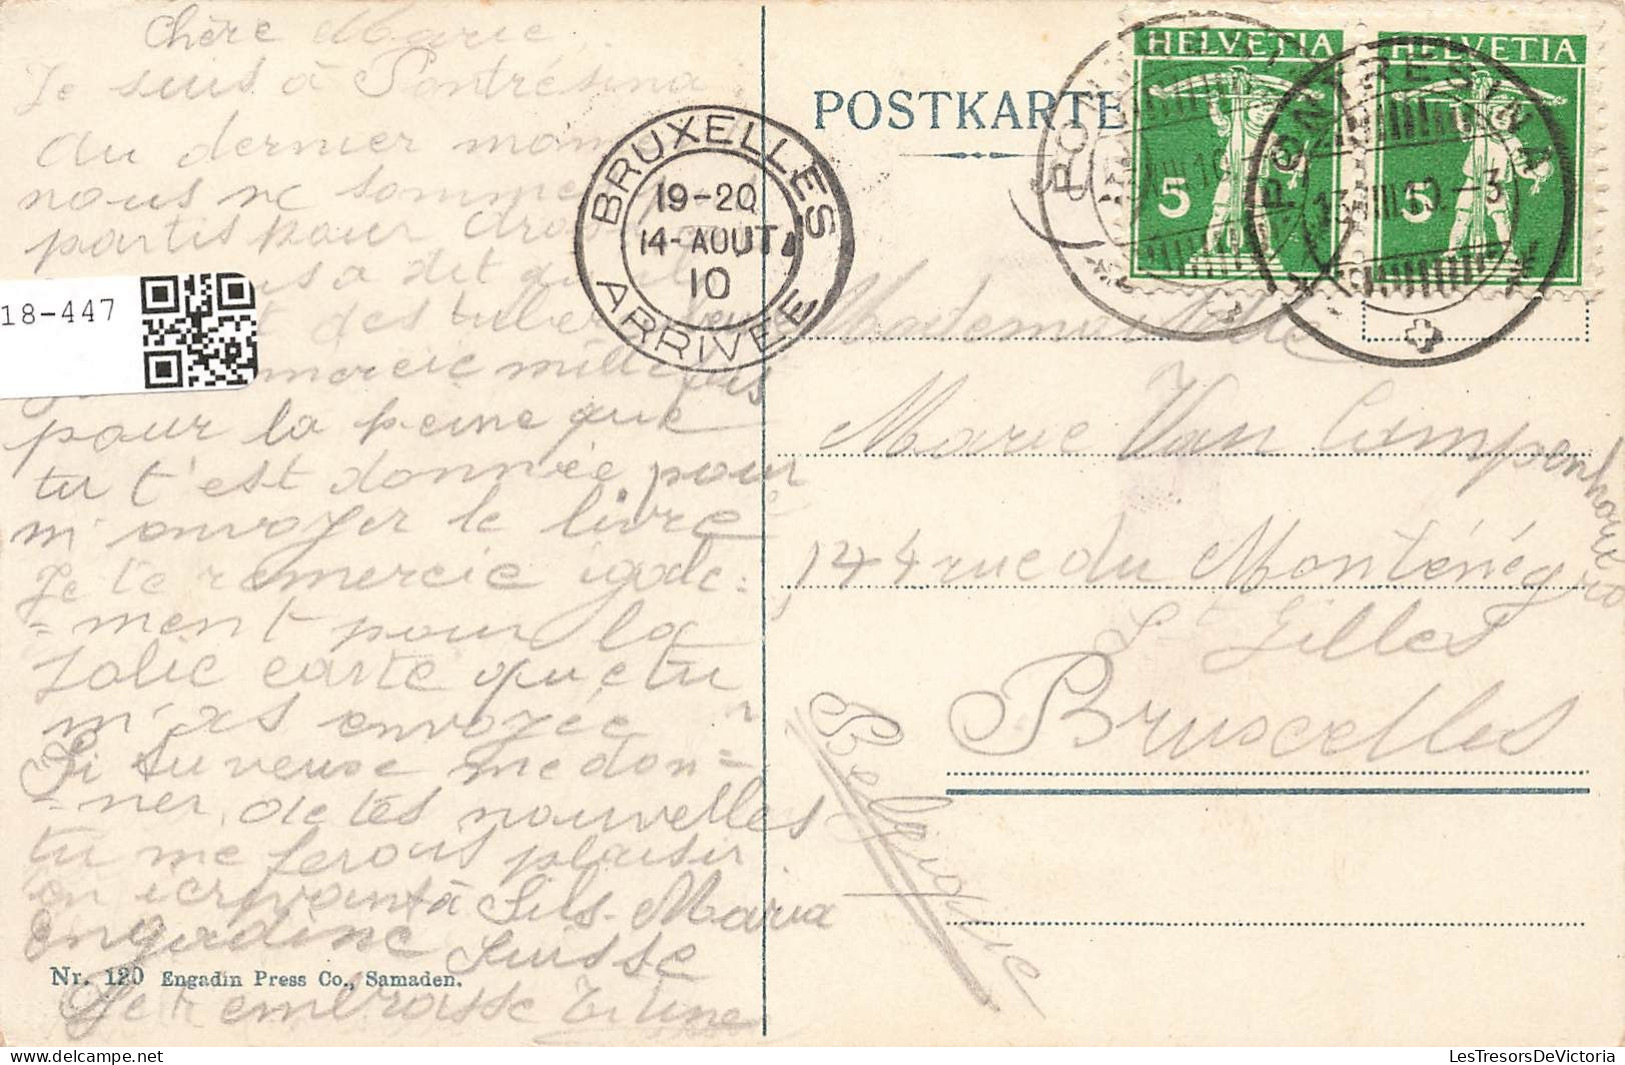 Chère Marie
Je suis à Pontrésina
au dernier mom
nous ne sommes
partis pour
a dit qu'il
des tuber
mercie mille fois
pour la peine que
tu t'est donnée pour
m'onvoyer le livre
Je te remercie igale=
=ment pour la
jolie carte que tu
m'as envoyée
Si tu veuse me don=
=ner de tes nouvelles
tu me ferous plaisir
en icrivant à Sils-Maria
Engadine Suisse
Je t'embrasse Titine
Nr. 120 Engadin Press Co., Samaden.
18-447
BRUXELLES
19-20
14-AOUT
10
ARRIVEE
POSTKARTE
HELVETIA
5
HELVETIA
5
PONTRESINA
13.VIII.10.-3
Mademoiselle
Marie Van Campenhout
144 rue du Monténégro
St Gilles
Bruxelles
Belgique
LesTresorsDeVictoria